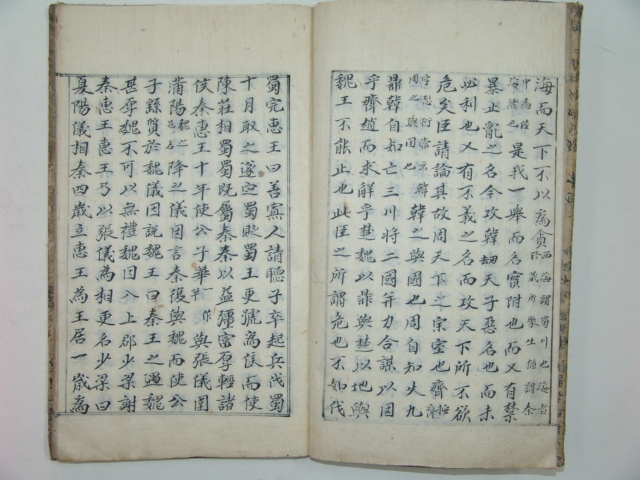 海而天下不以為貪西海謂蜀川也海者
是我一舉而名實附也而又有禁
暴止亂之名今攻韓劫天子惡名也而未
必利也又有不義之名而攻天下所不欲
危矣臣請論其故周天下之宗室也齊
韓之與國也周自知失九
鼎韓自知亡三川將二國并力合謀以因
乎齊趙而求解乎楚魏以鼎與楚以地與
魏王不能止也此臣之所謂危也不如伐
蜀完惠王曰善寡人請聽子卒起兵伐蜀
十月取之遂定蜀敗蜀王更號為侯而使
陳莊相蜀蜀既屬秦秦以益彊富厚輕諸
侯秦惠王十年使公子華一作與張儀圍
蒲陽降之儀因言秦復與魏而使公
子繇質於魏儀因說魏王曰秦王之遇魏
甚厚魏不可以無禮魏因入上郡少梁謝
秦惠王惠王乃以張儀為相更名少梁
夏陽儀相秦四歲立惠王為王居一歲為